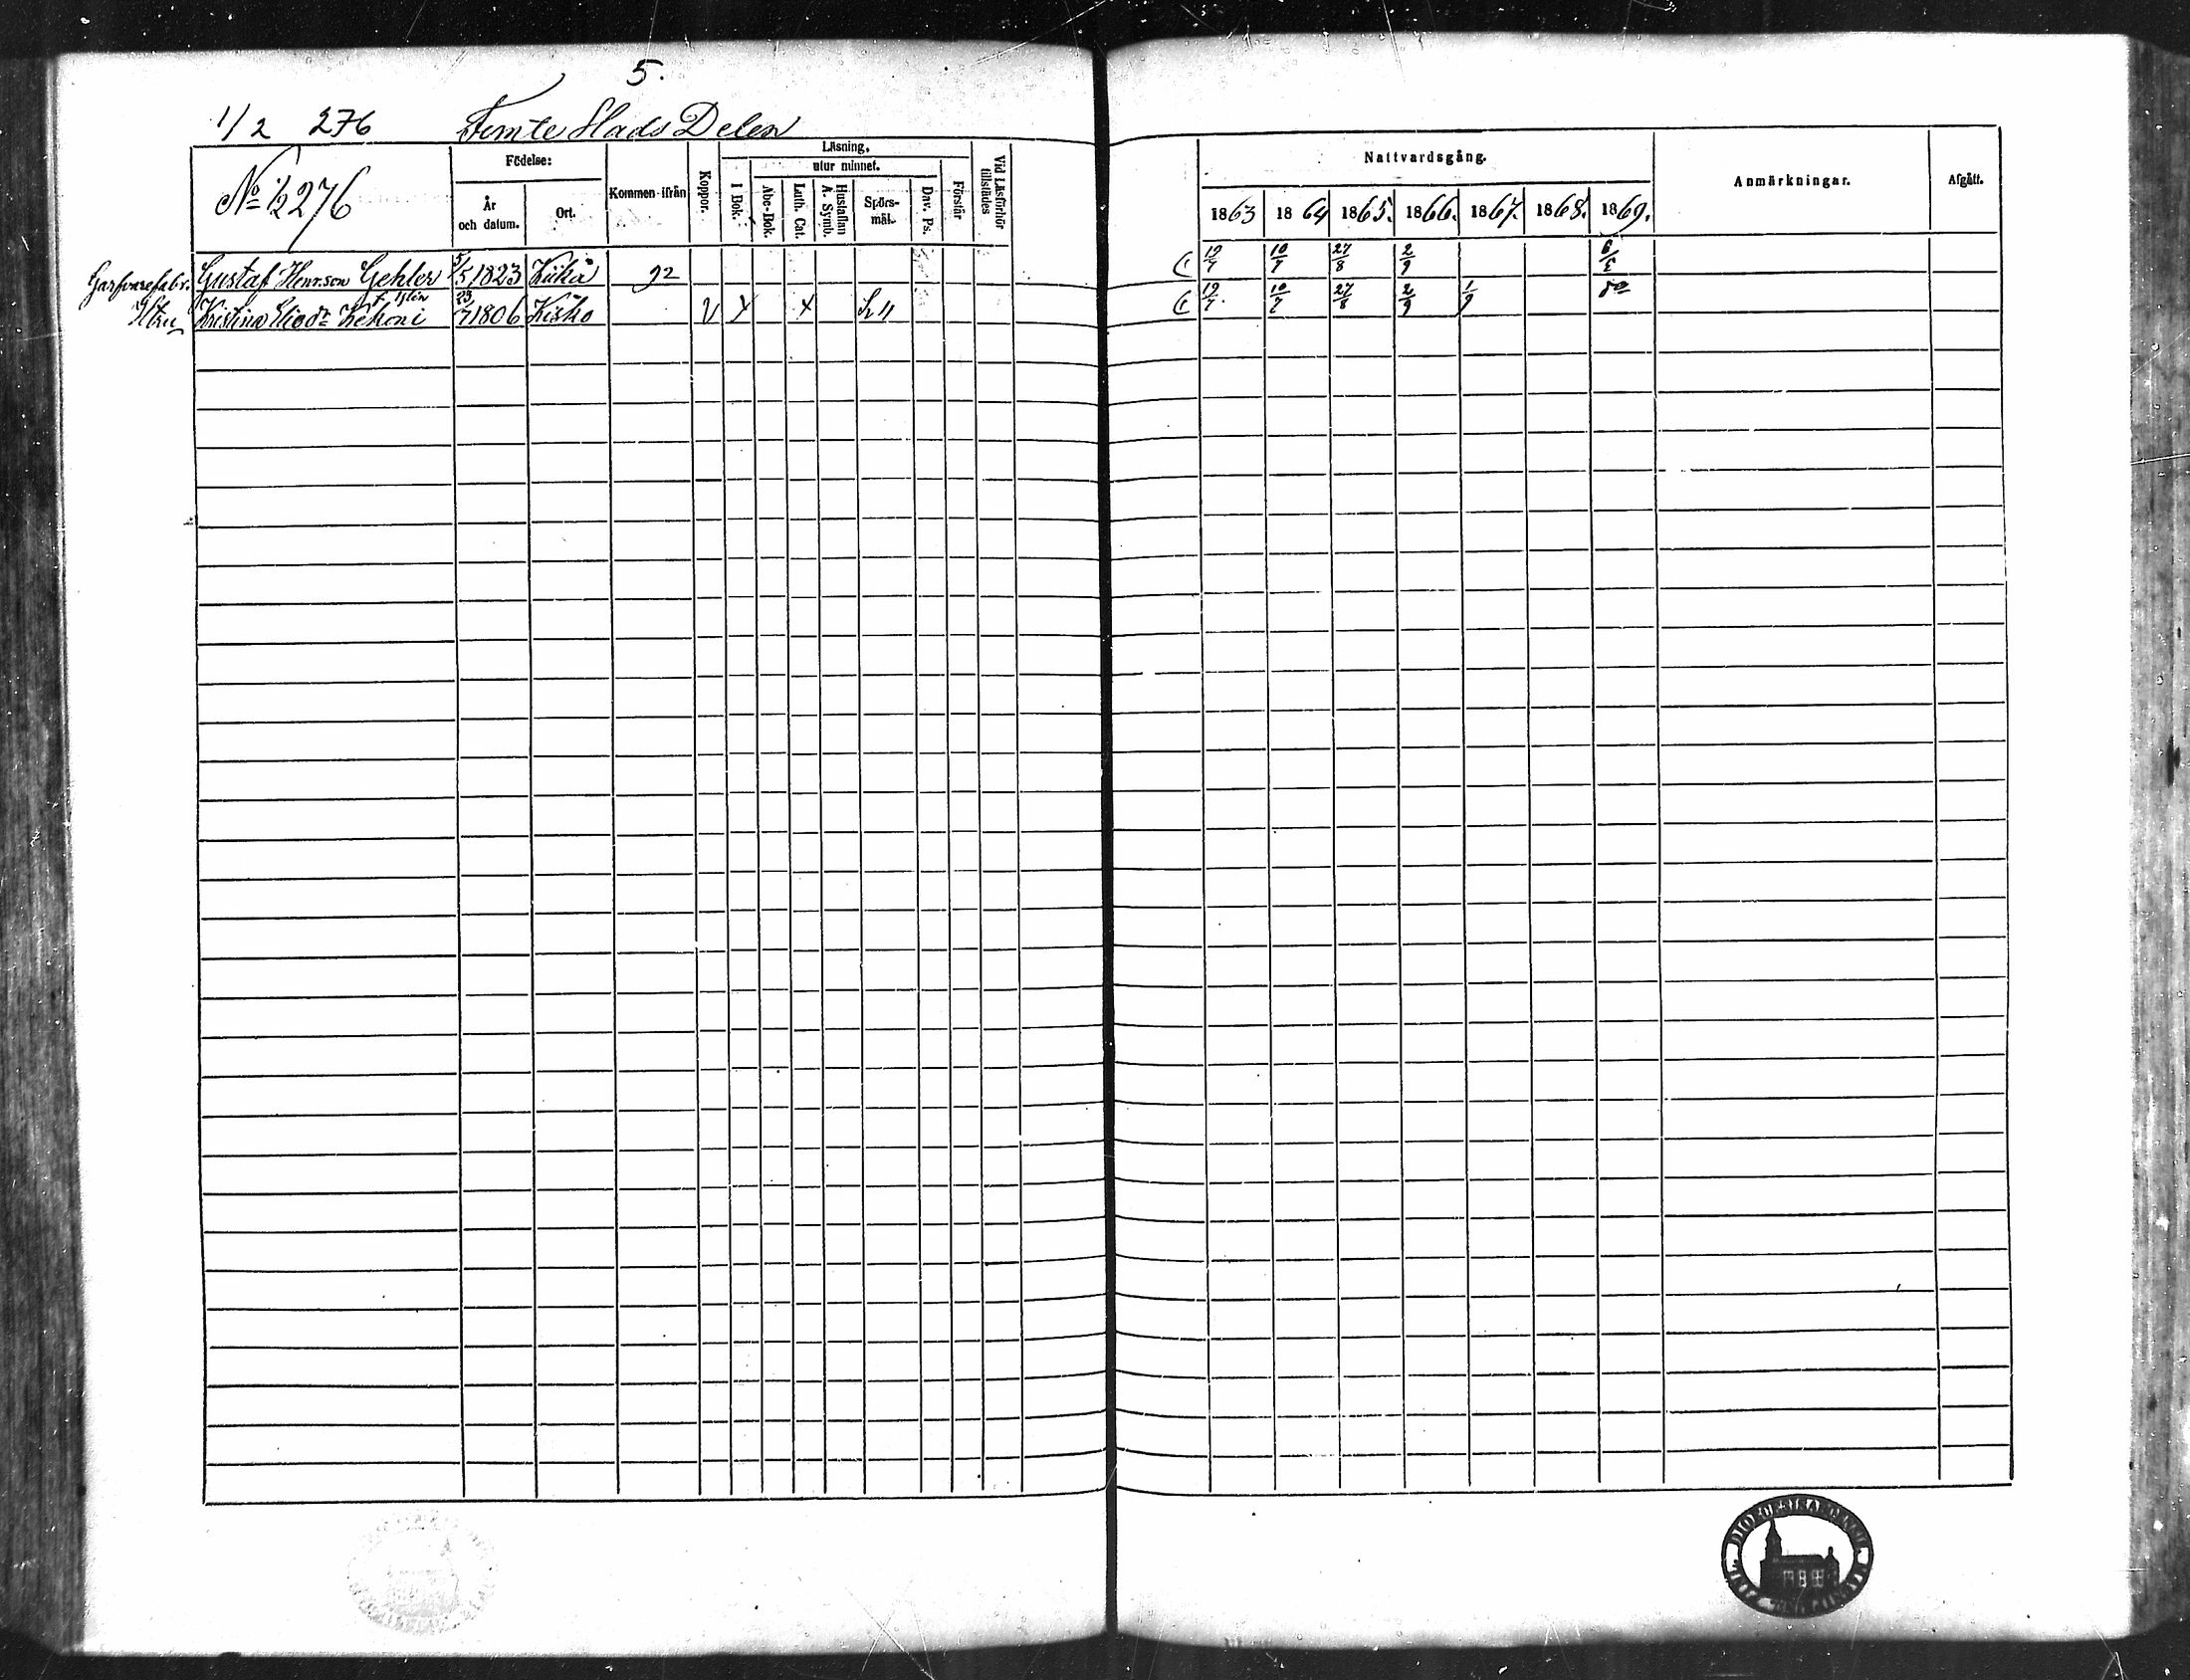 5.
1/2 276 Femte Stads Delen
No 1/2 276
Födelse:
År och datum.
Ort.
Kommen ifrån
Koppor.
Läsning.
utur minnet.
I Bok.
Abc-Bok.
Luth. Cat.
Hustaflan A. Symb.
Spörs-mål.
Dav. Ps.
Förstår
Vid Läsförhör tillstädes
Nattvardsgång.
1863 1864 1865. 1866. 1867. 1868. 1869.
Anmärkningar.
Afgått.
Garfvarefabr. Gustaf Henr.son Gehler 5/5 1823 Kiika 92 19/7 10/7 27/8 2/9
Hstru Kristina Eliedr 23/7 1806 Kisko V X X 19/7 10/7 27/8 2/9 1/9 do